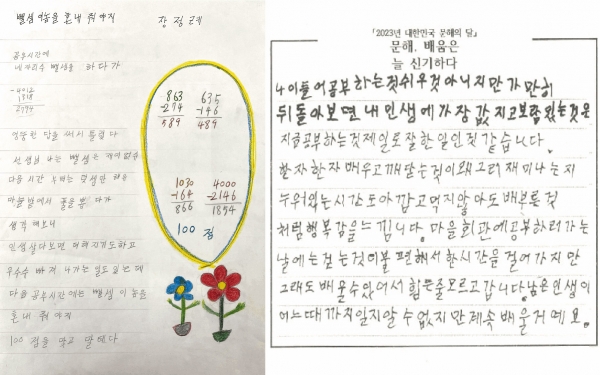 뺄셈 이놈을 혼내 줘야지
장정례
공부시간에
네자리수 뺄셈을 하다가
-4012
1818
2794
엉뚱한 답을 써서 틀렸다
선생님 나는 뺄셈은 재미없슴
다음 시간 부터는 덧셈만 하죠
마늘밭에서 풀을 뽑다가
생각해보니
인생살다보면 더해지기도하고
우수수 빠져 나가는 일도 있는데
다음 공부시간에는 뺄셈 이놈을
혼내 줘야지
100점을 맞고 말테다
863
-274
589
635
-146
489
1030
-164
866
4000
-2146
1854
100 점
「2023년 대한민국 문해의 달」
문해, 배움은
늘 신기하다
나이들어공부하는것쉬우것아니지만가만히
뒤돌아보면내인생에가장값지고보람있는것은
지금공부하는것제일도잘한일인것 같습니다.
한자한자배우고깨닫는것이왜그리재미나는지
누워있는시간도아깝고먹지않아도배부른것
처럼행복감을느낍니다. 마을회관에공부하러가는
날에는걷는것이불편해서한시간을걸어가지만
그래도배울수있어서힘든줄모르고갑니다.남은인생이
어느때까지일지알수없지만계속배울거예요.